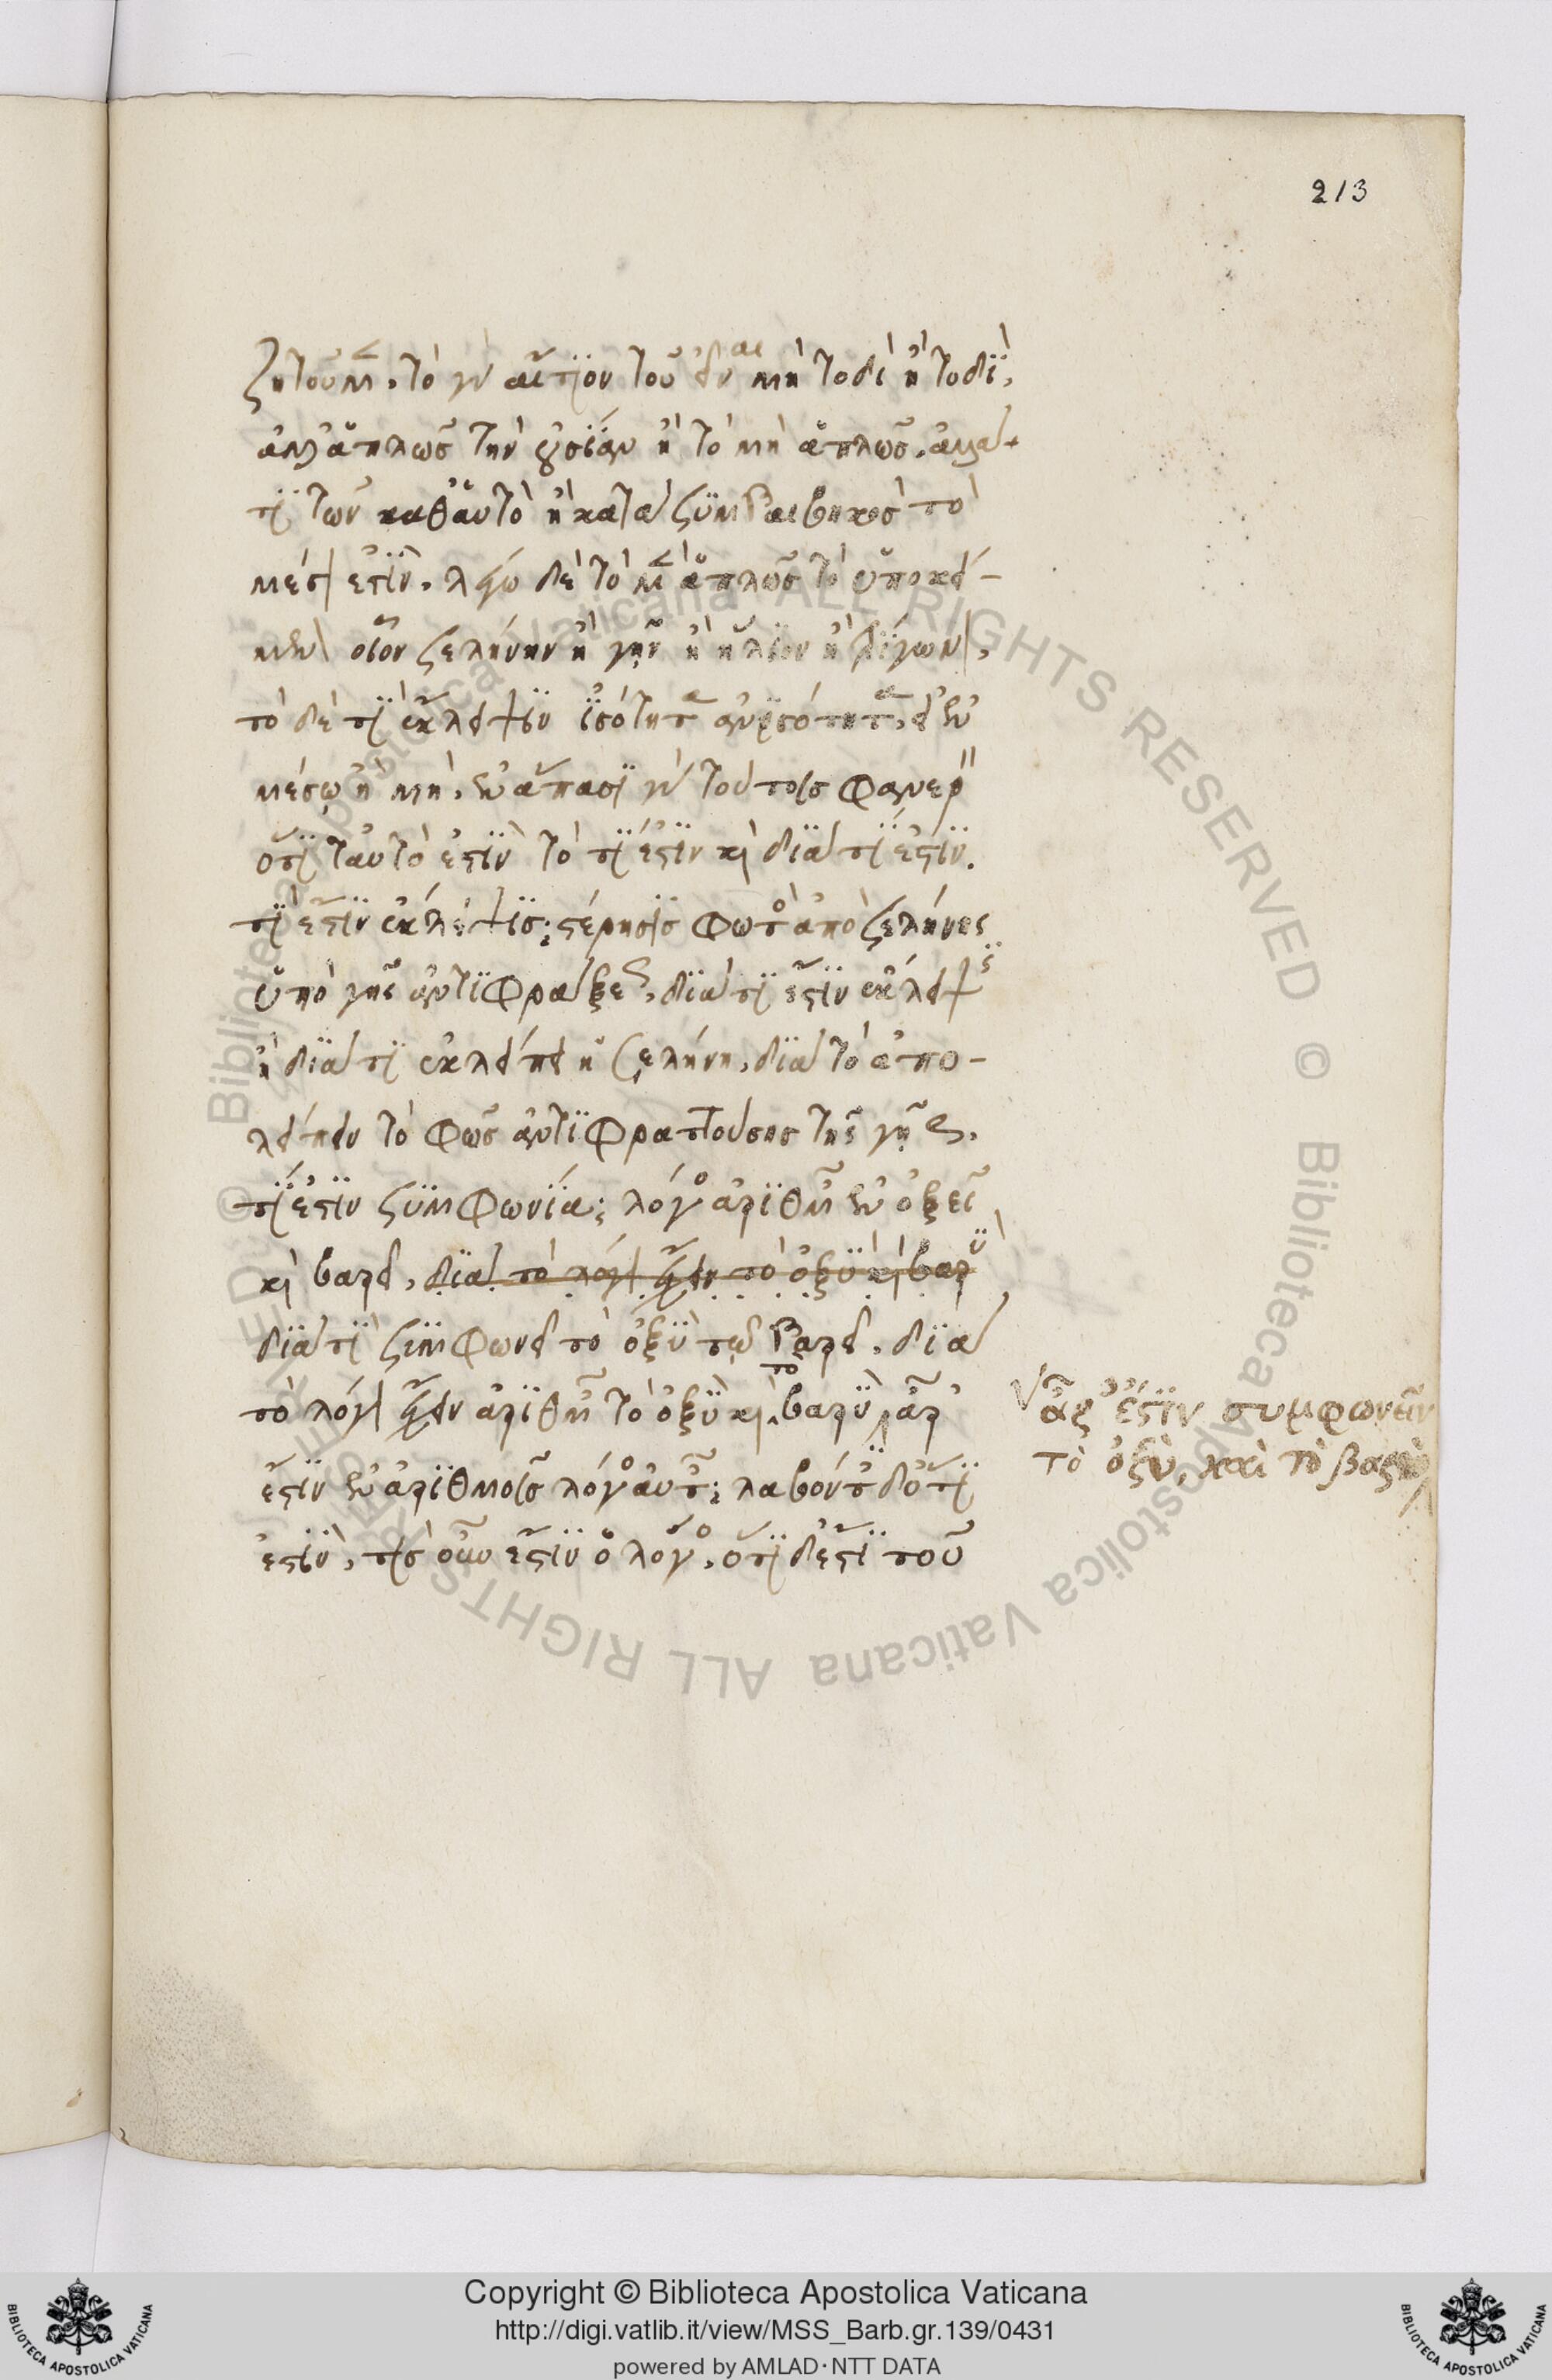 213
ζητοῦμεν. τὸ γὰρ αἴτιον τοῦ εἶναι μὴ τοδὶ ἢ τοδὶ,
ἀλλ' ἁπλῶς τὴν οὐσίαν ἢ τὸ μὴ ἁπλῶς. ἀλλά
τι τῶν καθ' αὑτὸ ἢ κατὰ συμβαιβηκὸς τὸ
μέσον ἐστίν. λέγω δὲ τὸ μὲν ἁπλῶς τὸ ὑποκεί-
μενον οἷον σελήνην ἢ γῆν ἢ ἥλιον ἢ τρίγωνον,
τὸ δὲ τὶ ἔκλειψιν ἰσότητα ἀνισότητα, εἰ ἐν
μέσῳ ἢ μή. ἐν ἅπασι γὰρ τούτοις φανερὸν
ὅτι ταὐτό ἐστιν τὸ τί ἐστιν καὶ διὰ τί ἐστιν.
τί ἐστιν ἔκλειψις; στέρησις φωτὸς ἀπὸ σελήνης
ὑπὸ γῆς ἀντιφράξεως. διὰ τί ἐστιν ἔκλειψις
ἢ διὰ τί ἐκλείπει ἡ σελήνη. διὰ τὸ ἀπο-
λείπειν τὸ φῶς ἀντιφραττούσης τῆς γῆς.
τί ἐστιν συμφωνία; λόγος ἀριθμῶν ἐν ὀξεῖ
καὶ βαρεῖ. διὰ τὸ λόγον ἔχειν τὸ ὀξὺ καὶ βαρὺ
διὰ τί συμφωνεῖ τὸ ὀξὺ τῷ βαρεῖ. διὰ
τὸ λόγον ἔχειν ἀριθμῶν τὸ ὀξὺ καὶ τὸ βαρὺ ἆρ'
ἐστιν ἐν ἀριθμοῖς λόγος αὐτῶν; λαβόντες δ' ὅτι
ἐστίν, τίς οὖν ἐστιν ὁ λόγος. ὅτι δ' ἐστὶ τοῦ
ἆρ' ἐστιν συμφωνεῖν
τὸ ὀξὺ, καὶ τὸ βαρὺ
Copyright © Biblioteca Apostolica Vaticana
http://digi.vatlib.it/view/MSS_Barb.gr.139/0431
powered by AMLAD·NTT DATA